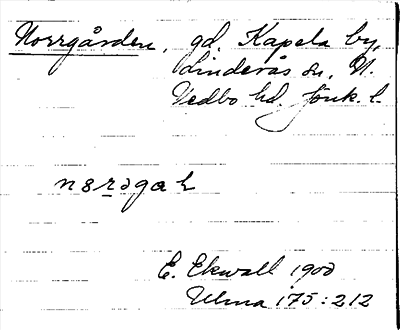 Norrgården, gd. Kapela by,
Linderås sn, N.
Vedbo hd. Jönk. l.
E. Ekwall 1900
Ulma 175:212